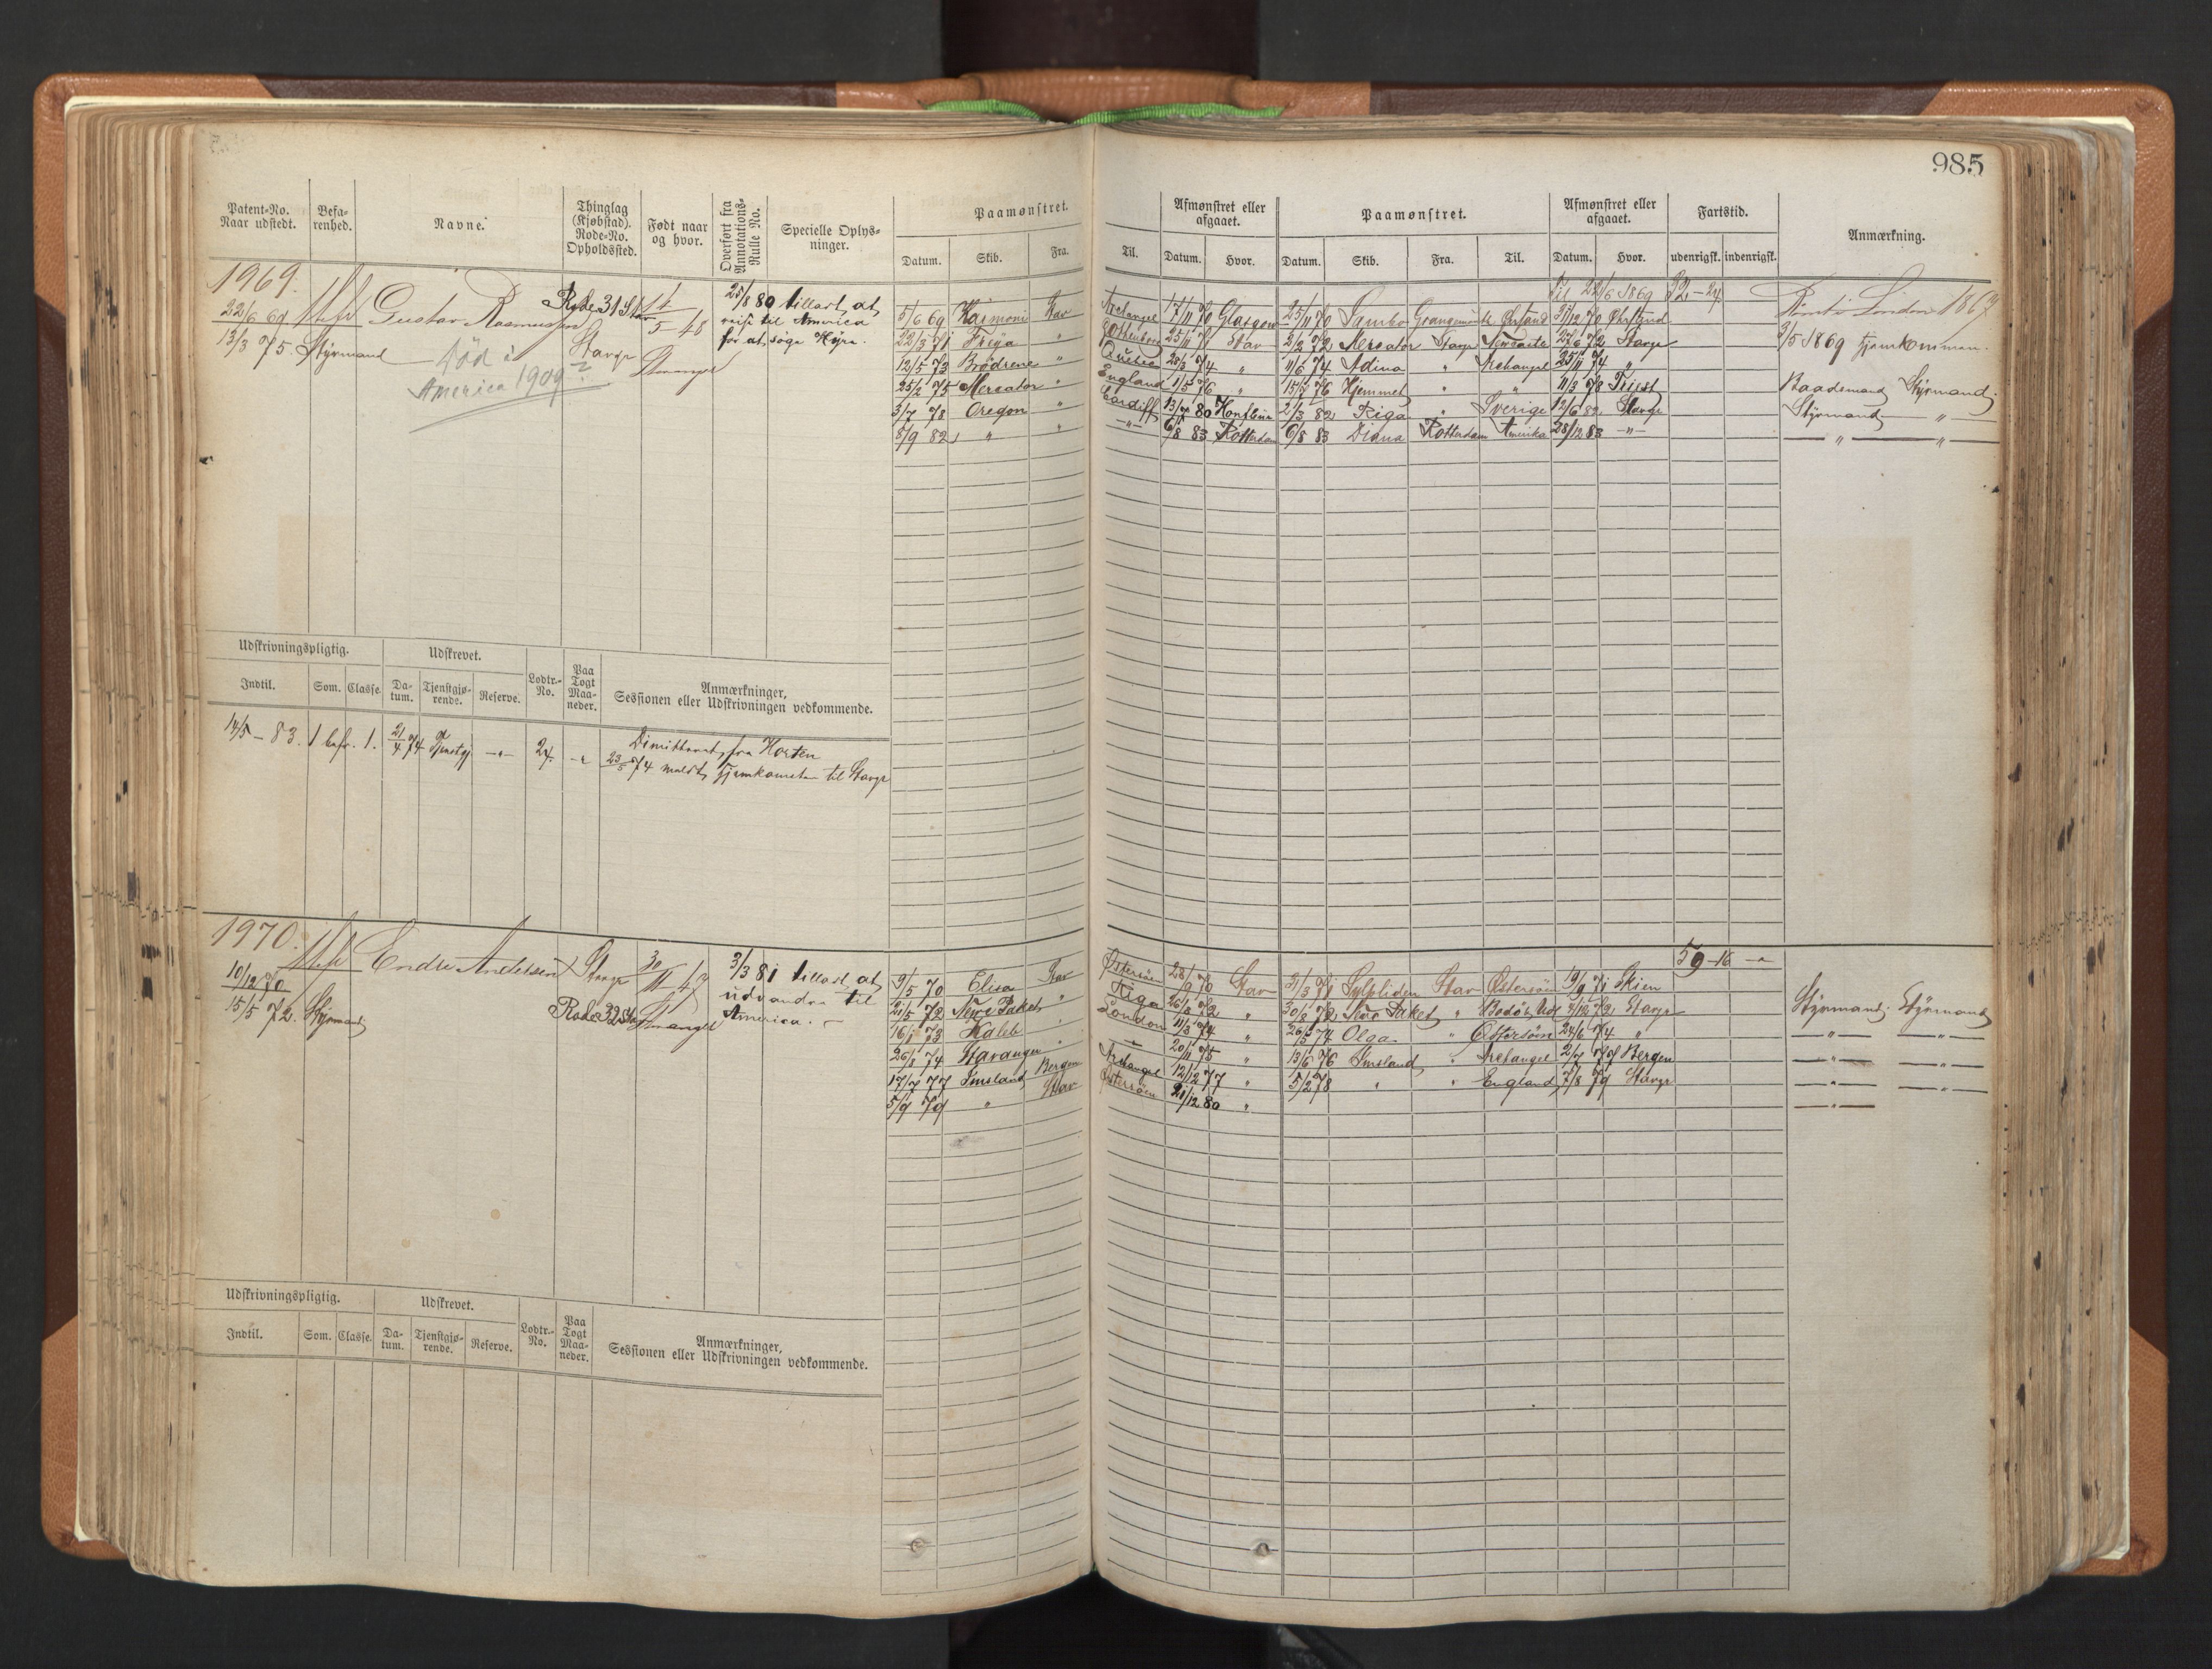 985
Patent-No. Naar udstedt. Befa-renhed. Navne. Thinglag (Kjøbstad). Rode-No. Opholdssted. Født naar og hvor. Overført fra Annotations-Rulle No. Specielle Oplys-ninger. Paamønstret. Afmønstret eller afgaaet. Paamønstret. Afmønstret eller afgaaet. Fartstid. Anmærkning.
Datum. Skib. Fra. Til. Datum. Hvor. Datum. Skib. Fra. Til. Datum. Hvor. udenrigsk. indenrigsk.
1969.
22/6 69 Gustav Rasmussen Rode 31 Stav 14/5 48
13/3 75. Styrmand Stavgr Stavanger
død i
America 1909?
25/8 80 tilladt at
reise til America
for at søge Hyre.
Til 22/6 1869 32-24
5/6 69 Harmoni Stav Archangel 17/11 70 Glasgow 25/11 70 Sambo Grangemouth Østsund 31/12 70
22/3 71 Freya " Gotheborg 25/11 71 Stav 2/2 72 Mercator Stavgr Newcastle 27/6 72 Stavgr 3/5 1869 hjemkommen.
12/5 73 Brødrene " Quebec 28/3 74 " 11/6 74 Adina " Archangel 25/11 74 "
25/2 75 Mercator " England 1/5 76 " 15/7 76 Hjemmet " " 11/3 78 Triest Baadsmand Styrmand.
3/7 78 Oregon " Cardiff 13/7 80 Honfleur 2/3 82 Riga " Sverige 12/6 82 Stavgr Styrmand "
8/9 82 " " -"- 6/8 83 Rotterdam 6/8 83 Diana Rotterdam Amerika 28/12 83 -"- " "
Udskrivningspligtig. Udskrevet. Lodtr.-No. Paa Togt Maa-neder. Anmærkninger, Sessionen eller Udskrivningen vedkommende.
Indtil. Som. Classe. Da-tum. Tjenstgjø-rende. Reserve.
14/5 - 83. 1 befr. 1. 21/4 74 Tjenstgj -"- 24 Dimitteret fra Horten
23/5 74 meldt hjemkommen til Stavgr
1970.
10/12 70 Endre Andersen Stavgr 30/11 47
15/5 72. Styrmand Rode 32 Stav Stavanger
3/3 81 tilladt at
udvandre til
America.
59-16
9/5 70 Elisa Stav Østersøen 28/9 70 Stav 31/3 71 Sylphiden Stav Østersøen 19/9 71 Skien
21/5 72 Nye Paket " Riga 26/8 72 " 30/8 72 Nye Paket " Bodø 2/12 72 Stavgr Styrmand. Styrmand
16/1 73 Kaleb " London 11/3 74 " 26/3 74 Olga " Østersøen 24/6 74 " " "
26/8 74 Stavanger " 20/11 75 " 13/6 76 Imsland " Archangel 2/7 77 Bergen " "
17/7 77 Imsland Bergen Archangel 12/12 77 " 5/2 78 " " England 7/8 79 Stavgr " "
5/9 79 " Stav Østersøen 21/12 80 " "
Udskrivningspligtig. Udskrevet. Lodtr.-No. Paa Togt Maa-neder. Anmærkninger, Sessionen eller Udskrivningen vedkommende.
Indtil. Som. Classe. Da-tum. Tjenstgjø-rende. Reserve.